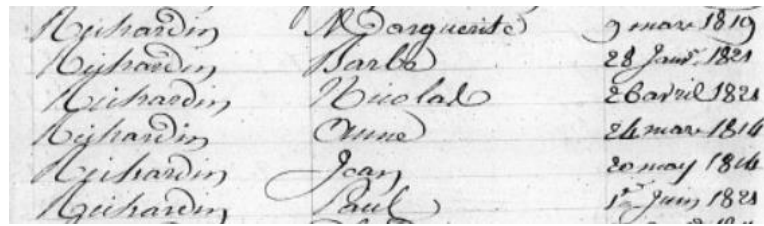 Richardin Marguerite 9 mars 1819
Richardin Barbe 28 Janv. 1821
Richardin Nicolas 26 avril 1821
Richardin Anne 24 mars 1814
Richardin Jean 20 may 1814
Richardin Paul 1er Juin 1821